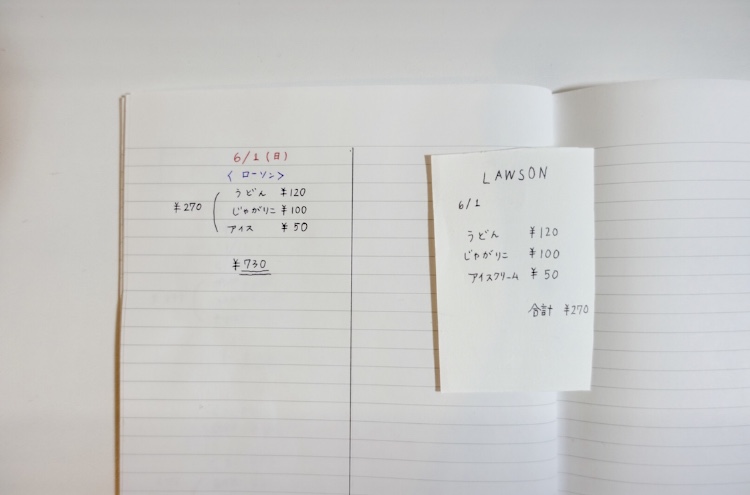 6/1(日)
〈 ローソン〉
うどん ¥120
¥270 じゃがりこ ¥100
アイス ¥50
¥730
LAWSON
6/1
うどん ¥120
じゃがりこ ¥100
アイスクリーム ¥50
合計 ¥270